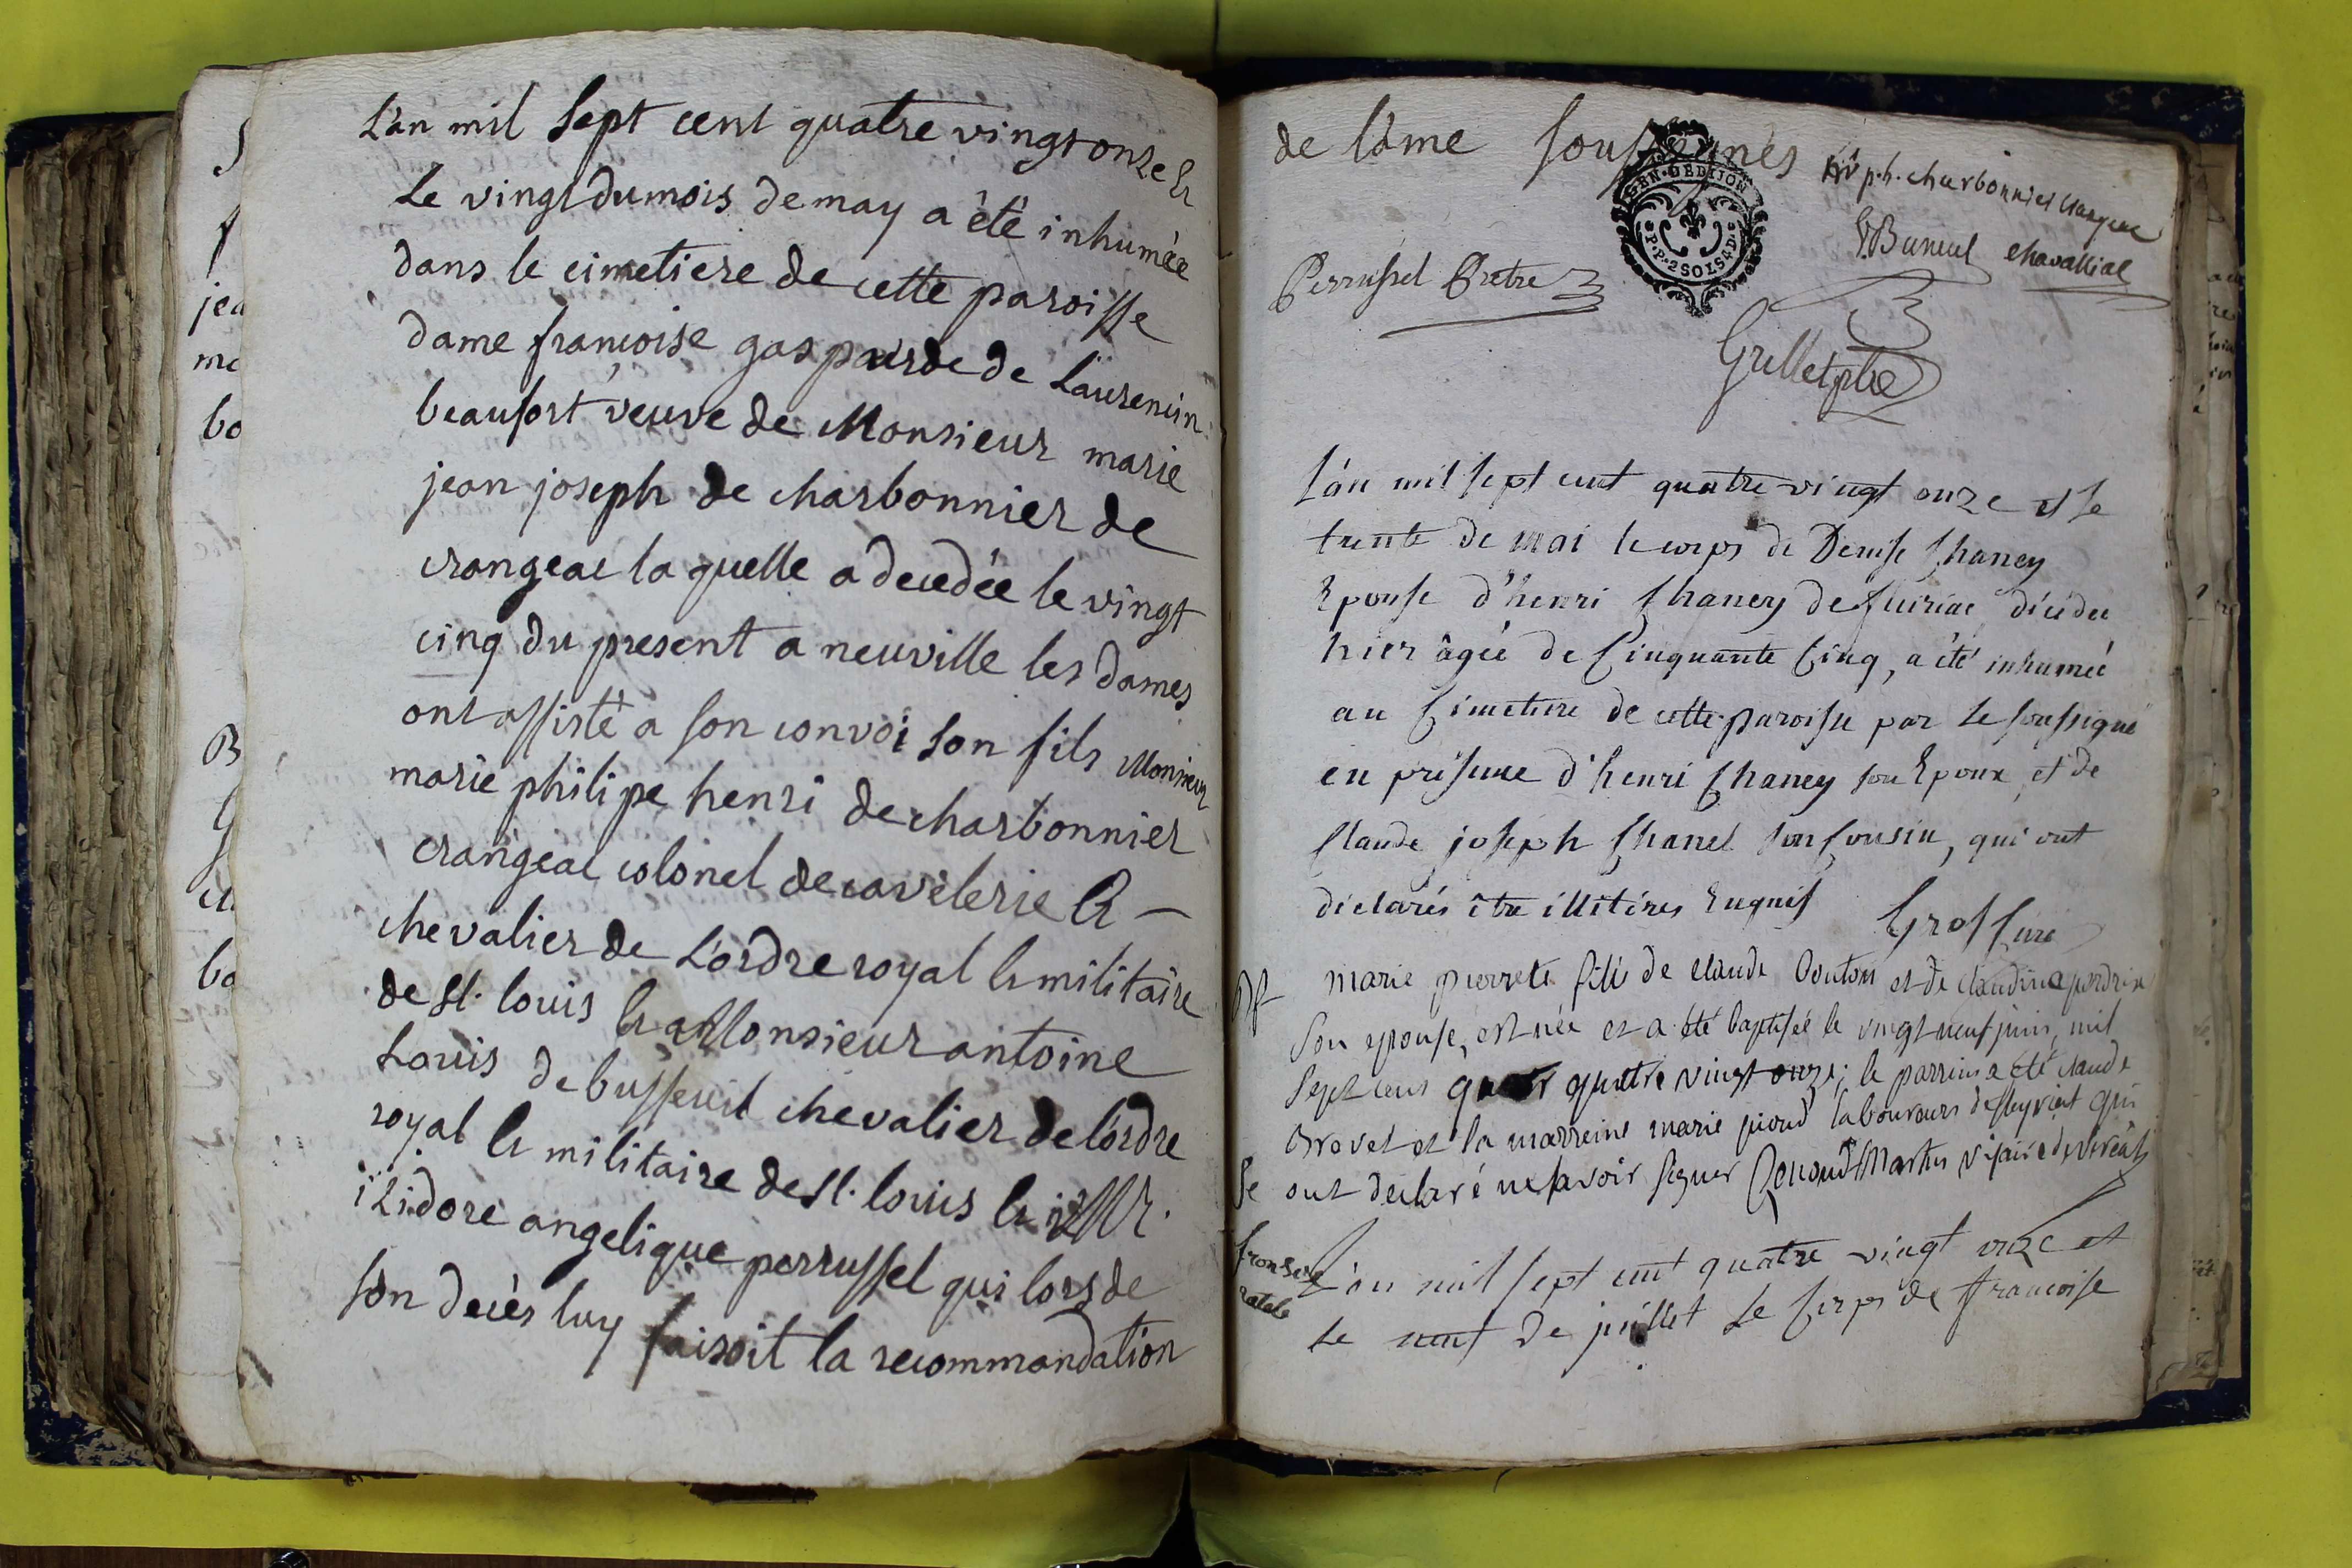 L'an mil sept cent quatre vingt onze et
le vingt du mois de may a été inhumée
dans le cimetiere de cette paroisse
dame françoise gasparde de Laurencin
beaufort veuve de Monsieur marie
jean joseph de charbonnier de
crangeac la quelle a decedée le vingt
cinq du present a neuville les dames
ont assisté a son convoi son fils Monsieur
marie philipe henri de charbonnier
crangeac colonel de cavelerie et
chevalier de L'ordre royal et militaire
de st. louis et a Monsieur antoine
Louis de busseuil chevalier de l'ordre
royal et militaire de st. louis et Mr.
isidore angelique perrussel qui lors de
son decès luy faisoit la recommandation
de l'ame soussignés
GEN. DE DIJON
P.P. 2 SOLS 4 D.
ph. charbonnier Crangeac
Perrussel Prêtre
L'an mil sept cent quatre vingt onze et le
trente de mai le corps de Denise Chaney
Epouse d'henri Chaney de fleiriac décédée
hier âgée de Cinquante Cinq, a été inhumée
au Cimetiere de cette paroisse par le soussigné
en présence d'henri Chaney son Epoux, et de
Claude joseph Chanel son Cousin, qui ont
déclarés être illitérés Enquis
Gros Curé
marie pierrete fille de claude bouton et de claudine perdrix
son epouse, est née et a été baptisée le vingt neuf juin, mil
sept cens quatre vingt onze; le parrein a été claude
brevet et la marreine marie pioud laboureurs de fleyriat qui
ont declaré ne savoir signer Renoud Martin vicaire de viriat
L'an mil sept cent quatre vingt onze et
Le neuf de juillet Le Corps de francoise